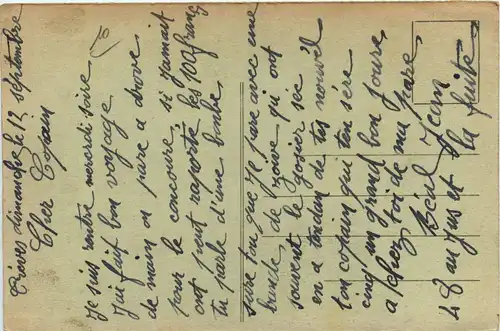 Trèves dimanche le 12 septembre
Cher Copain
Je suis rentre mercredi soire
J'ai fait bon voyage
de main on pare a drove
pour le concoure, si jamait
ont peut raporte les 100 frang
tu parle d'une bombe
sure ton que je pare avec une
bande de zove qi ont
souvent le gosier sèe
en a tendan de tes nouvel
ton copain qui ten sére
cinq un grand bon joure
a chez toi de ma pare
Jean
48 au jus et la fuite